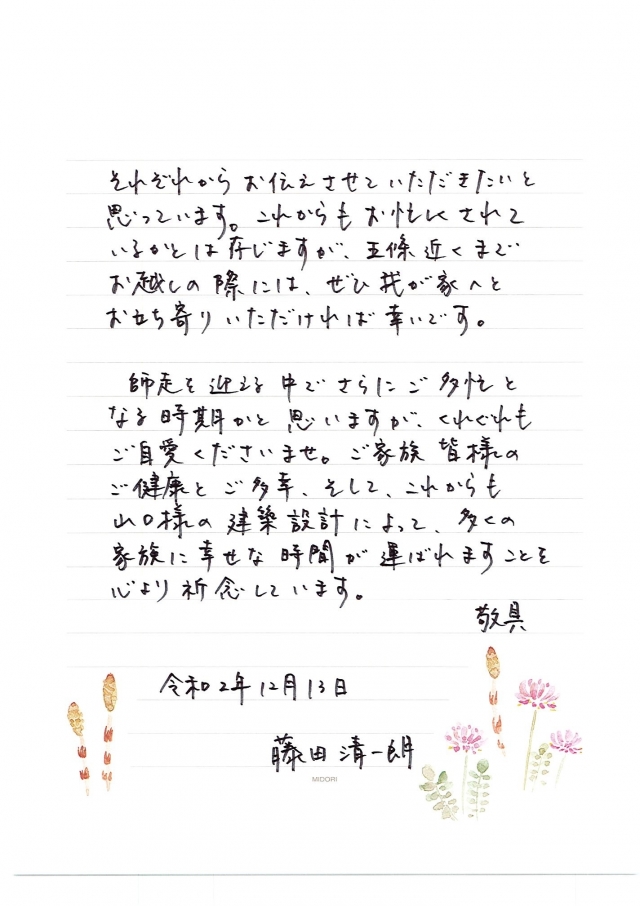 それぞれからお伝えさせていただきたいと
思っています。これからもお忙しくされて
いるかとは存じますが、五條近くまで
お越しの際には、ぜひ我が家へと
お立ち寄りいただければ幸いです。
師走を迎える中でさらにご多忙と
なる時期かと思いますが、くれぐれも
ご自愛くださいませ。ご家族皆様の
ご健康とご多幸、そして、これからも
山口様の建築設計によって、多くの
家族に幸せな時間が運ばれますことを
心より祈念しています。
敬具
令和2年12月13日
藤田清一朗
MIDORI